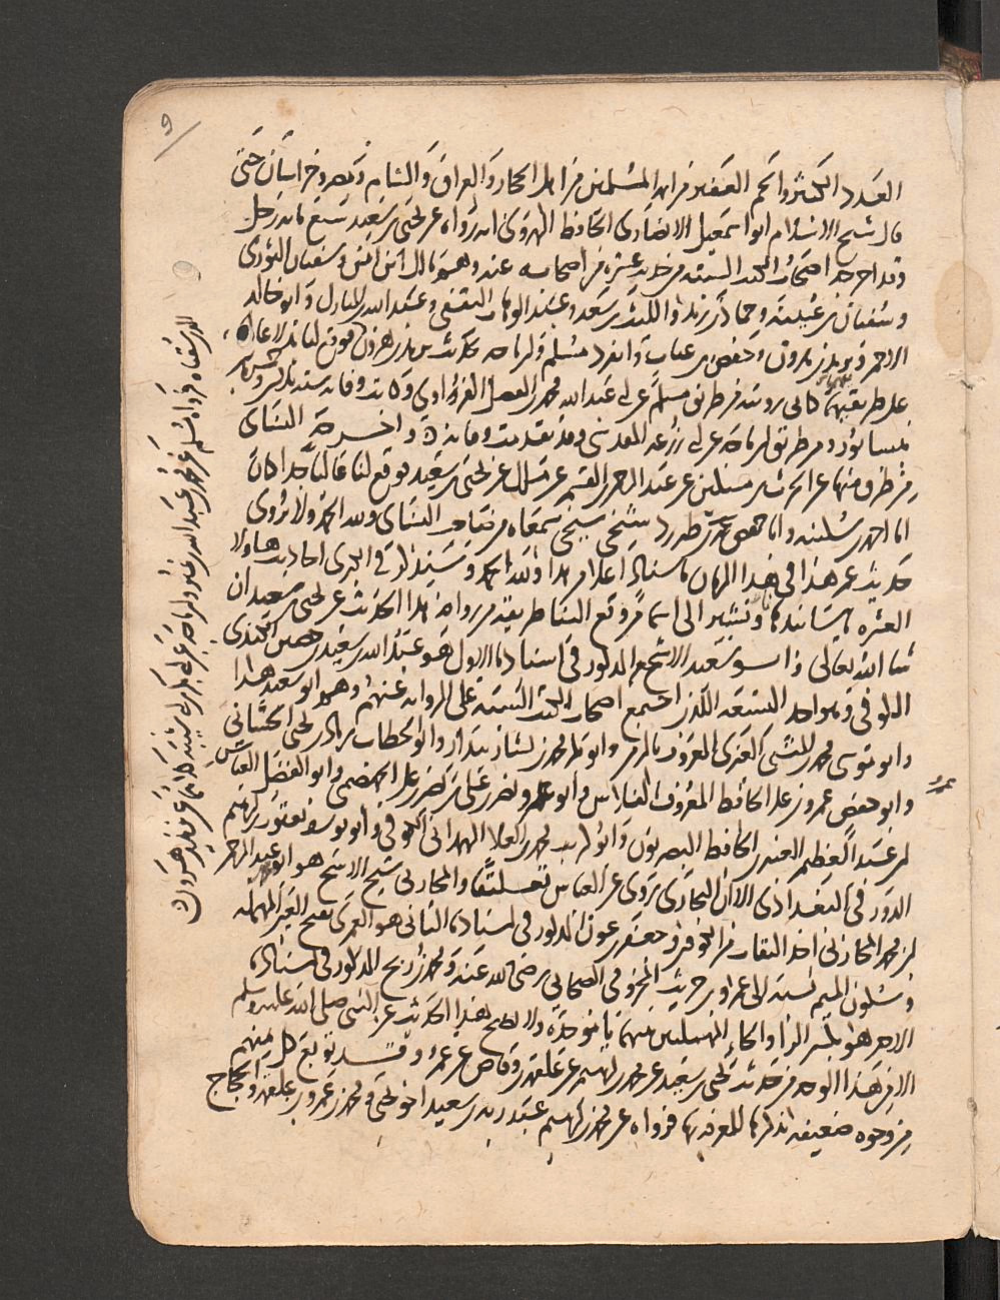 العدد الكثير والجم الغفير من ايمة المسلمين من اهل الحجاز والعراق والشام ومصر وخراسان حتى
قال شيخ الاسلام ابو اسمعيل الانصارى الحافظ الهروى انه رواه عن يحيى بن سعيد سبع مائة رجل
وقد اخرجه اصحاب الكتب الستة من حديث عشرة من اصحابه عنه وهم مالك بن انس وسفيان الثورى
وسفيان بن عيينة وحماد بن زيد والليث بن سعد وعبد الوهاب الثقفى وعبد الله بن المبارك وابو خالد
الاحمر ويزيد بن هرون وحفص بن غياث وانفرد مسلم وابن ماجه بحديث يزيد بن هرون فوقع لنا بدلا عاليا
على طريقيهما كانى رويته من طريق مسلم عن ابى عبد الله محمد بن الفضل الفراوى وكانت وفاته سنة ثلثين وخمس
نيسابور ومن طريق ابن ماجه عن ابى زرعة المقدسى وقد تقدمت وفاته واخرجه النسائى
من طرق منها عن الحرث بن مسكين عن عبد الرحمن بن القسم عن مالك عن يحيى بن سعيد فوقع لنا عاليا جدا كان
انا احمد بن سلمة وانا حفص عمر بن طبرزد شيخى شيخى سمعاه من صاحب النسائى ولله الحمد ولا يروى
حديث عمر هذا فى هذا الزمان باسناد اعلا من هذا ولله الحمد وسنذكر فى اخرى احاديث هاولا
العشرة باسانيدها ونشير الى اسما من وقع الينا طريقه من رواة هذا الحديث عن يحيى بن سعيد ان
شا الله تعالى وابو سعيد الاشج المذكور فى اسنادنا الاول هو عبد الله بن سعيد بن حصين الكندى
الكوفى وهو احد التسعة الذين اجتمع اصحاب الكتب الستة على الرواية عنهم وهم ابو سعيد هذا
وابو موسى محمد بن المثنى العنزى المعروف بالزمن وابو بكر محمد بن بشار بندار وابو الخطاب زياد بن يحيى الحسانى
وابو حفص عمرو بن على الحافظ المعروف بالفلاس وابو عمرو نصر بن على بن نصر بن على الجهضمى وابو الفضل العباس
بن عبد العظيم العنبرى الحافظ البصريون وابو كريب محمد بن العلا الهمدانى الكوفى وابو يوسف يعقوب بن ابرهيم
الدورقى البغدادى الا ان البخارى روى عن العباس تعليقا والمحاربى شيخ الاشج هو ابو محمد عبد الرحمن
بن محمد المحاربى احد الثقات من الكوفيين وجعفر بن عون المذكور فى اسنادنا الثانى هو العمرى بفتح العين المهملة
وسكون الميم نسبة الى عمرو بن حريث المخزومى الصحابى رضى الله عنه ومحمد بن ربح المذكور فى اسناد
الاخر هو بكسر الرا والحاء المهملتين بينهما با موحدة ولا يصح هذا الحديث عن النبى صلى الله عليه وسلم
الا من هذا الوجه من حديث يحيى بن سعيد عن محمد بن ابرهيم عن علقمة بن وقاص عن عمر وقد توبع كل منهم
من وجوه ضعيفة نذكرها للمعرفة بها فرواه عن محمد بن ابرهيم عبد ربه بن سعيد اخو يحيى ومحمد بن عمرو بن علقمة والحجاج